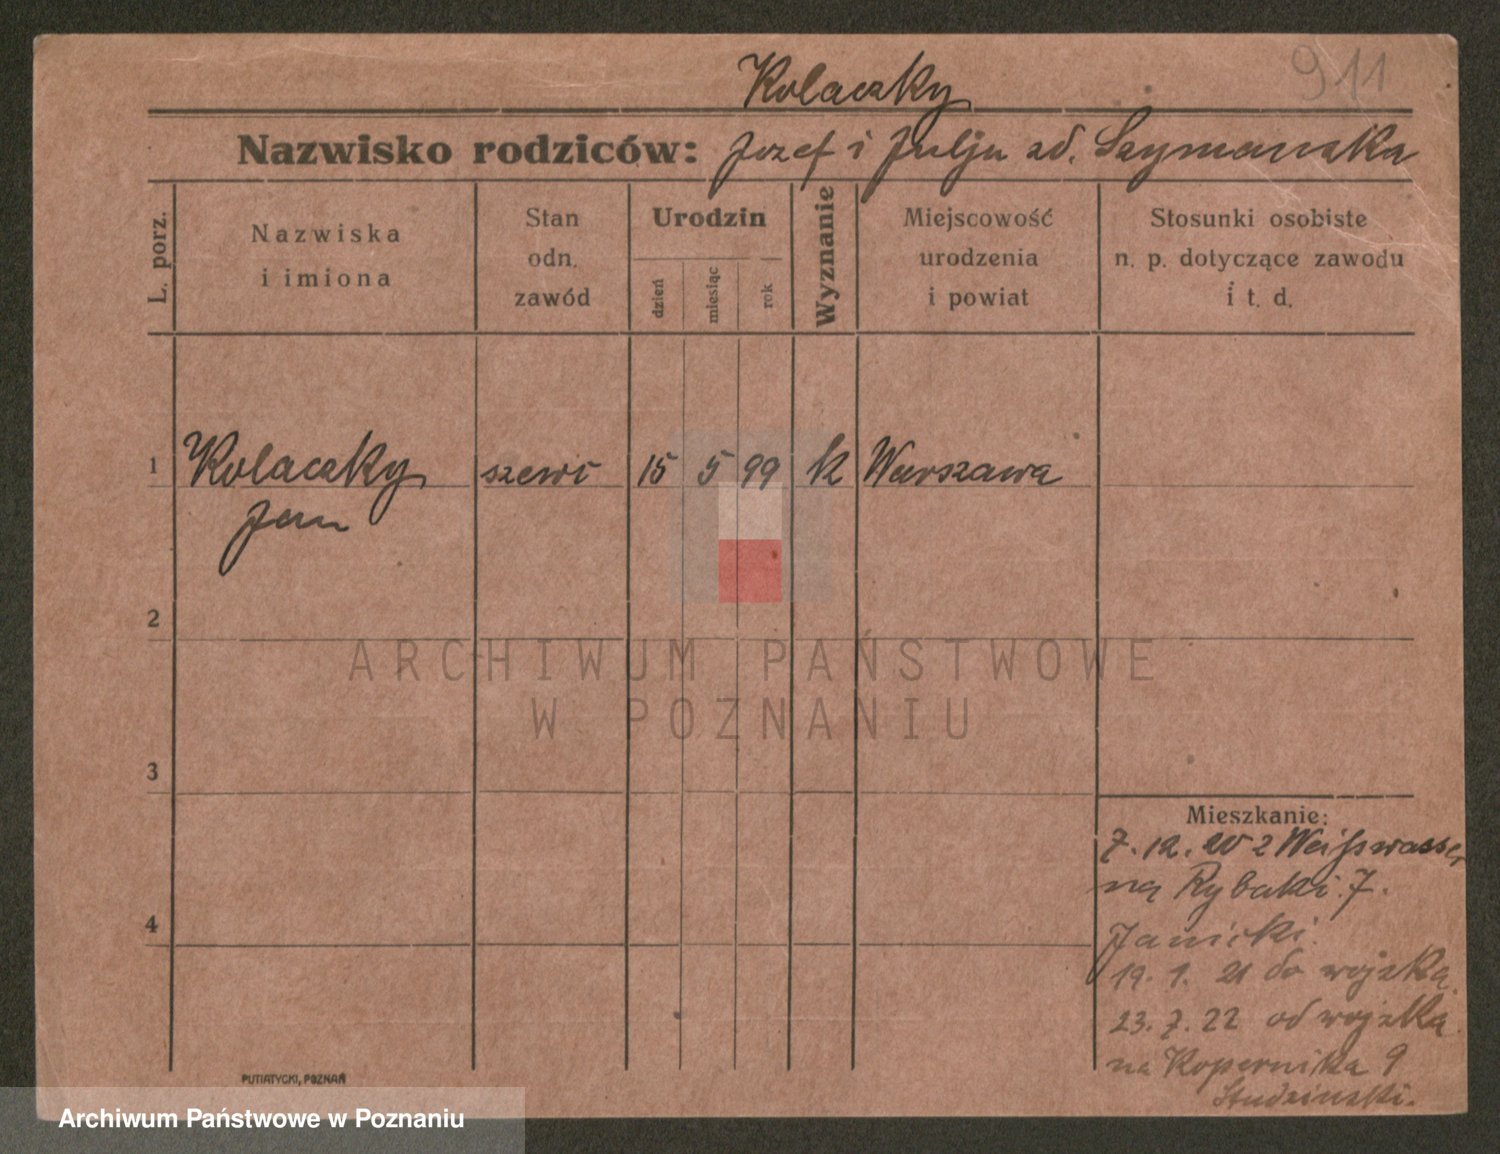 911
Kolaczky
Nazwisko rodziców: Jozef i Julju zd. Szymanska
L. porz.
Nazwiska i imiona
Stan odn. zawód
Urodzin
dzień
miesiąc
rok
Wyznanie
Miejscowość urodzenia i powiat
Stosunki osobiste n. p. dotyczące zawodu i t. d.
1 Kolaczky szewc 15 5 99 k Warszawa
Jan
2
3
4
Mieszkanie:
7. 12. 20 z Weißwasser
na Rybaki 7.
Janicki.
19. 1. 21 do wojska.
23. 7. 22 od wojska
na Kopernika 9
Studzinski.
PUTIATYCKI, POZNAŃ
ARCHIWUM PAŃSTWOWE
W POZNANIU
Archiwum Państwowe w Poznaniu